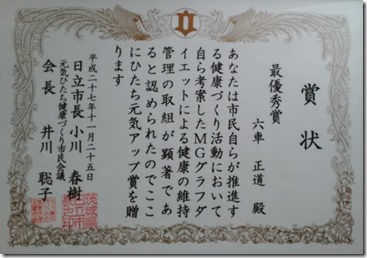 賞状
最優秀賞
六車 正道 殿
あなたは市民自らが推進す
る健康づくり活動において
自ら考案したMGグラフダ
イエットによる健康の維持
管理の取組が顕著であ
ると認められたのでここ
にひたち元気アップ賞を贈
ります
平成二十七年十一月二十五日
日立市長 小川 春樹
元気ひたち健康づくり市民会議
会長 井川 聡子